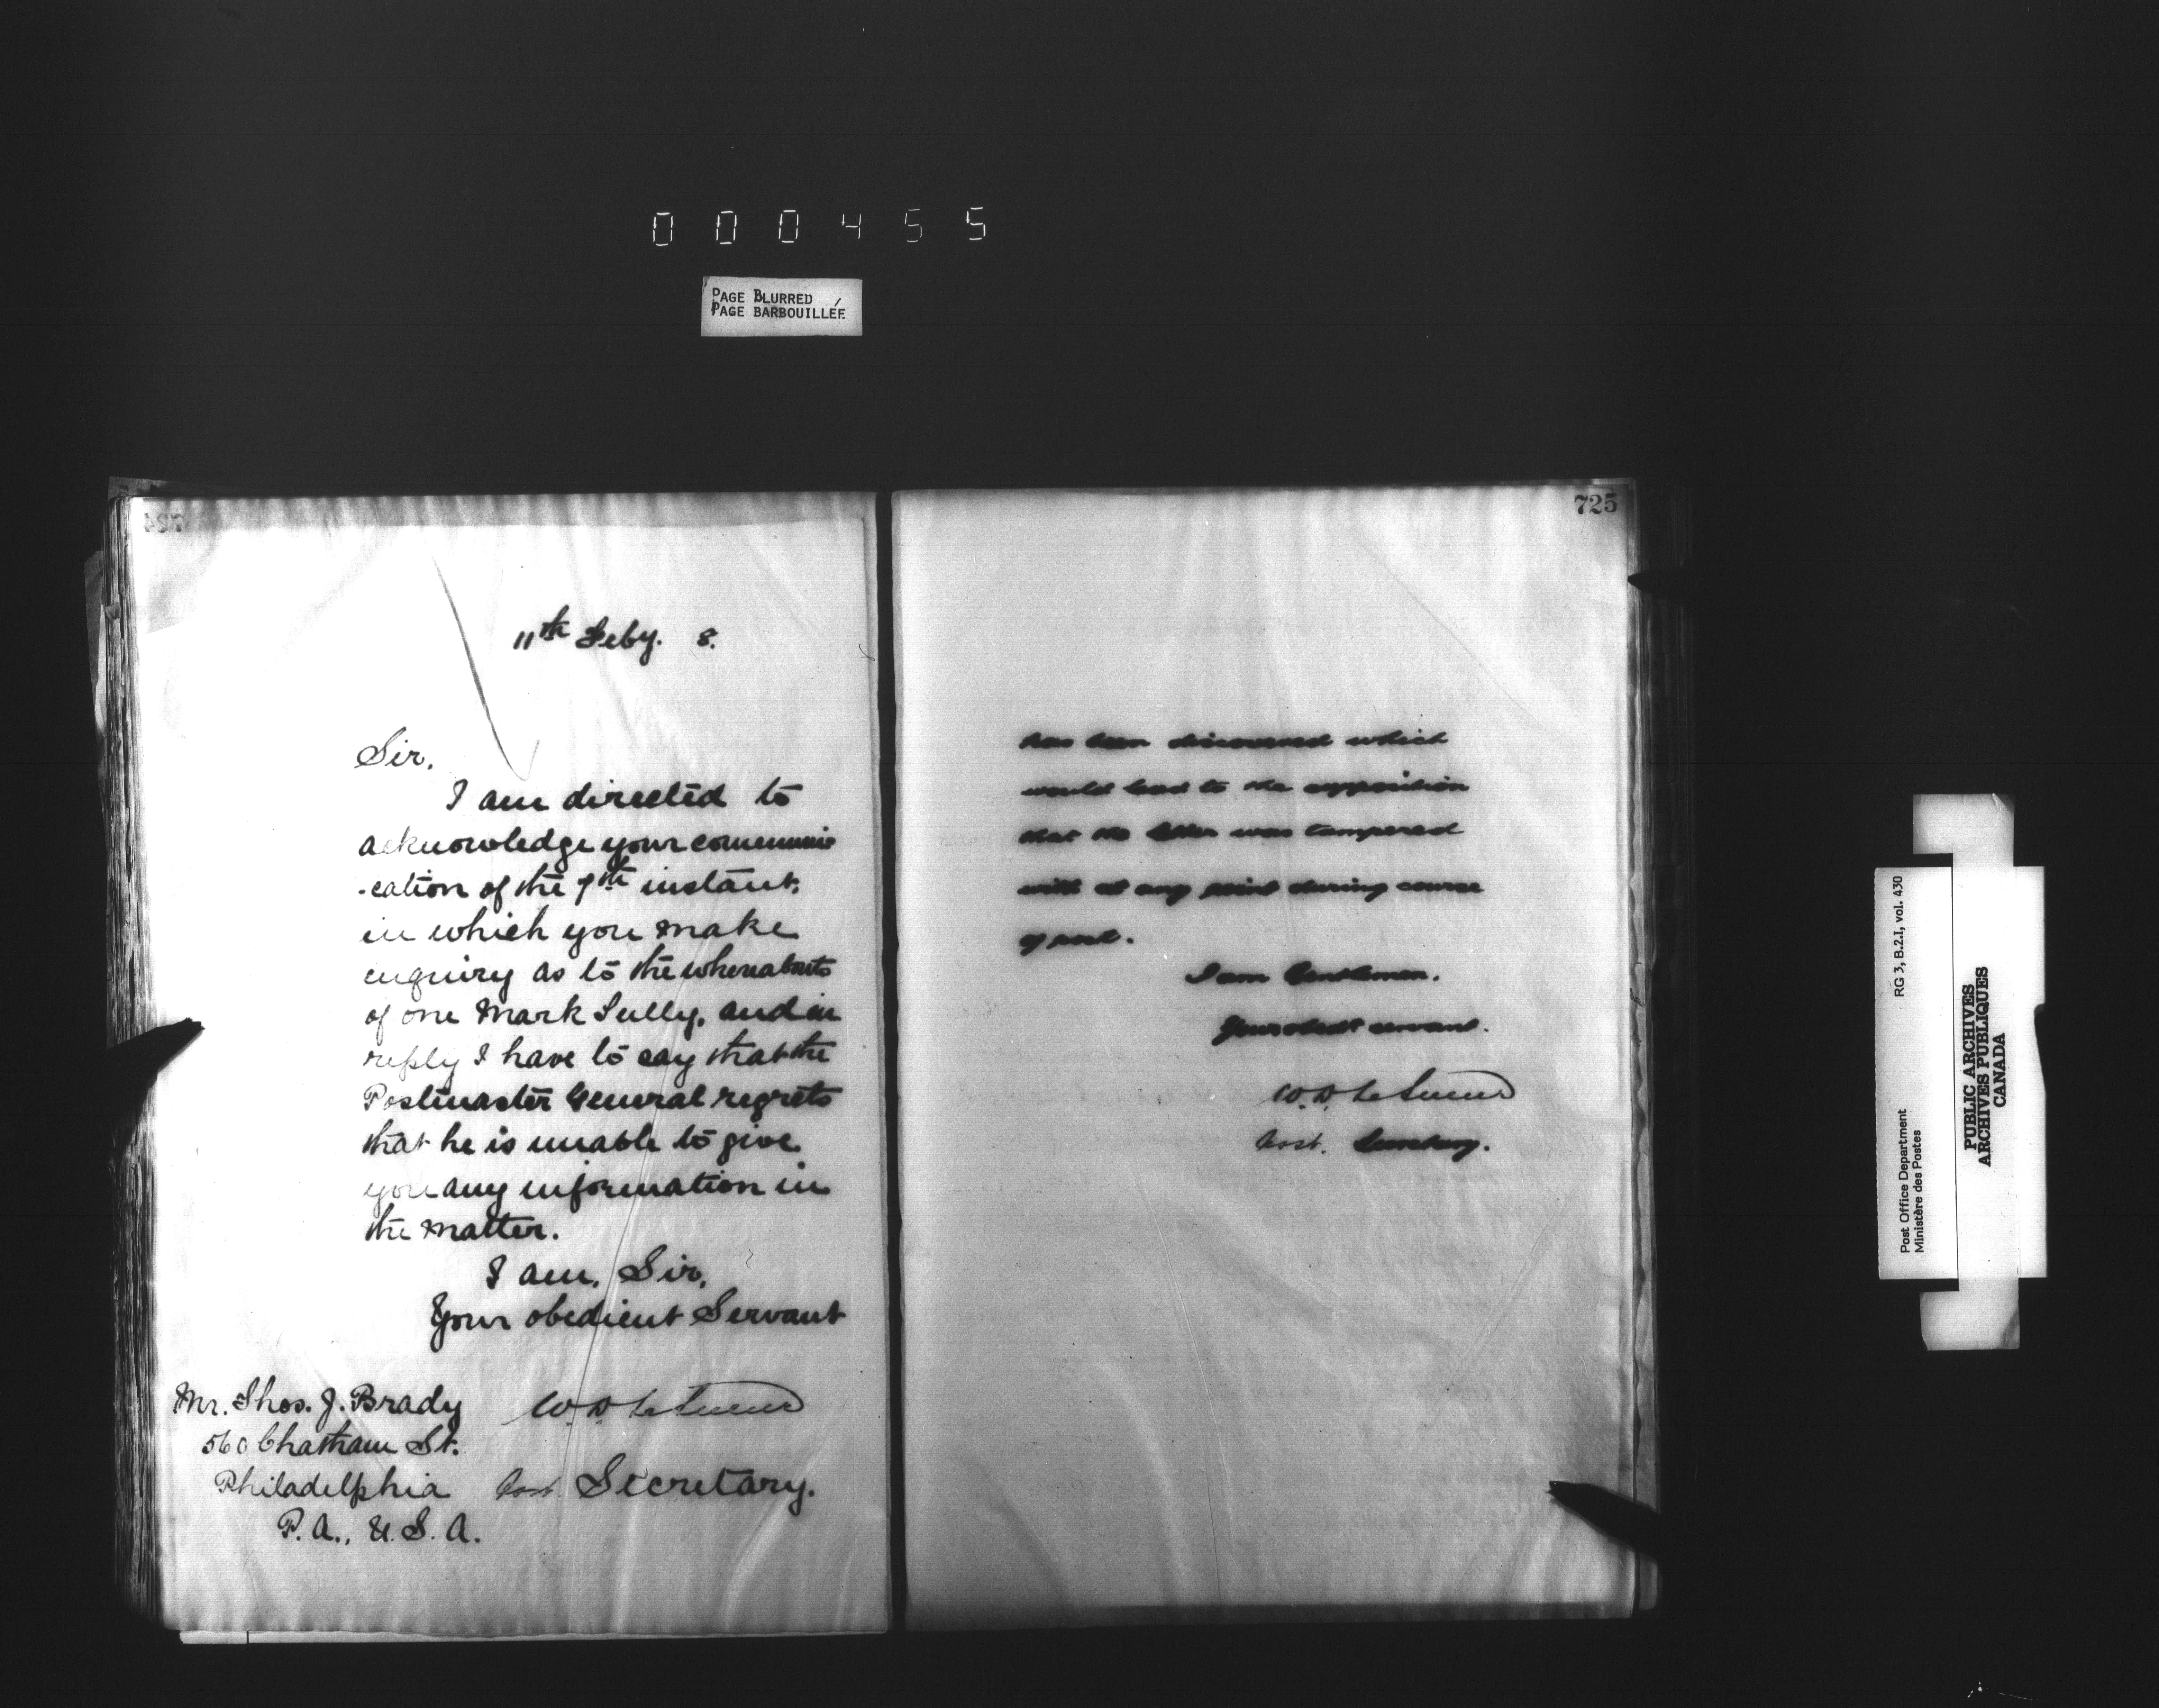 000455
PAGE BLURRED
PAGE BARBOUILLÉE
724
11th Feby. 8.
Sir,
I am directed to
acknowledge your communi
-cation of the 7th instant,
in which you make
enquiry as to the whereabouts
of one Mark Sully, and in
reply I have to say that the
Postmaster General regrets
that he is unable to give
you any information in
the matter.
I am, Sir,
Your obedient Servant
W. D. LeSueur
Asst. Secretary.
Mr. Thos. J. Brady
560 Chatham St.
Philadelphia
P.A., U.S.A.
725
has been discovered which
would lead to the supposition
that the letter was tampered
with at any point during course
of post.
I am Gentlemen.
Your obedt servant.
W. D. LeSueur
Asst. Secretary.
RG 3, B.2.I, vol. 430
Post Office Department
Ministère des Postes
PUBLIC ARCHIVES
ARCHIVES PUBLIQUES
CANADA